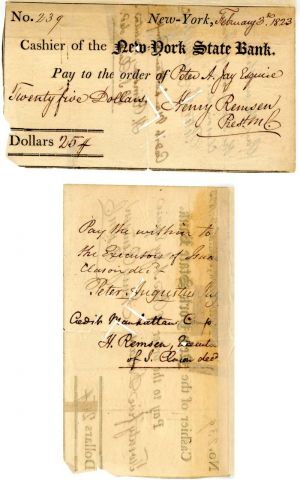 No. 239 New-York, February 3rd 1823
Cashier of the New-York State Bank.
Pay to the order of Peter A. Jay Esquire
Twenty five Dollars, Henry Remsen
Prest M C
Dollars 25
Pay the within to
the Executors of Isaac
Clason decd
Peter Augustus Jay
Credit Manhattan C
H. Remsen, Executor
of I. Clason decd